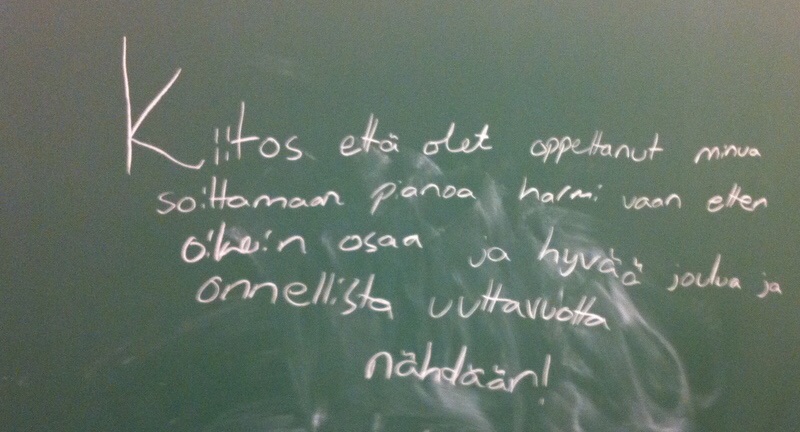 Kiitos että olet oppettanut minua
soittamaan pianoa harmi vaan etten
oikein osaa ja hyvää joulua ja
onnellista uuttavuotta
nähdään!